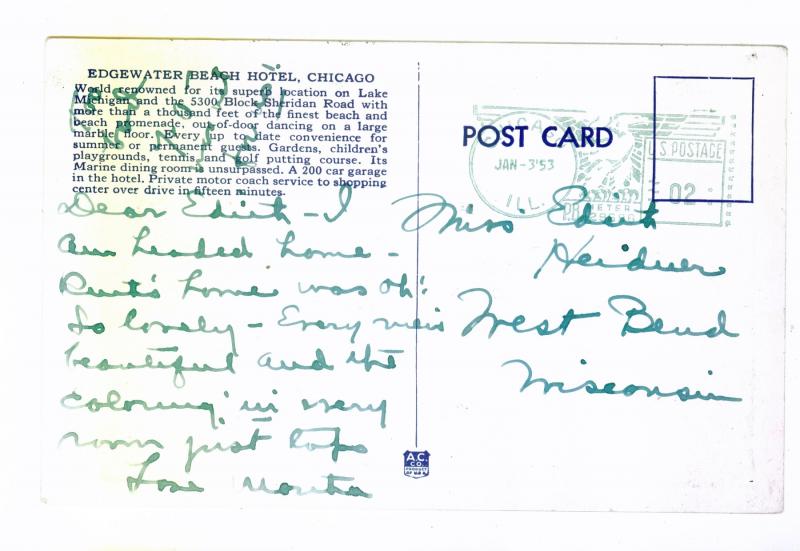 EDGEWATER BEACH HOTEL, CHICAGO
World renowned for its superb location on Lake
Michigan and the 5300 Block Sheridan Road with
more than a thousand feet of the finest beach and
beach promenade, out-of-door dancing on a large
marble floor. Every up to date convenience for
summer or permanent guests. Gardens, children's
playgrounds, tennis and golf putting course. Its
Marine dining room is unsurpassed. A 200 car garage
in the hotel. Private motor coach service to shopping
center over drive in fifteen minutes.
Dear Edith - I
am headed home -
home was oh!
So lovely - Every view
beautiful and the
coloring in every
room just tops
Love
POST CARD
JAN -3'53
ILL.
U.S. POSTAGE
02
P.B. METER
Miss Edith
Heidner
West Bend
Wisconsin
A.C.
CO.
PRODUCT
OF U.S.A.